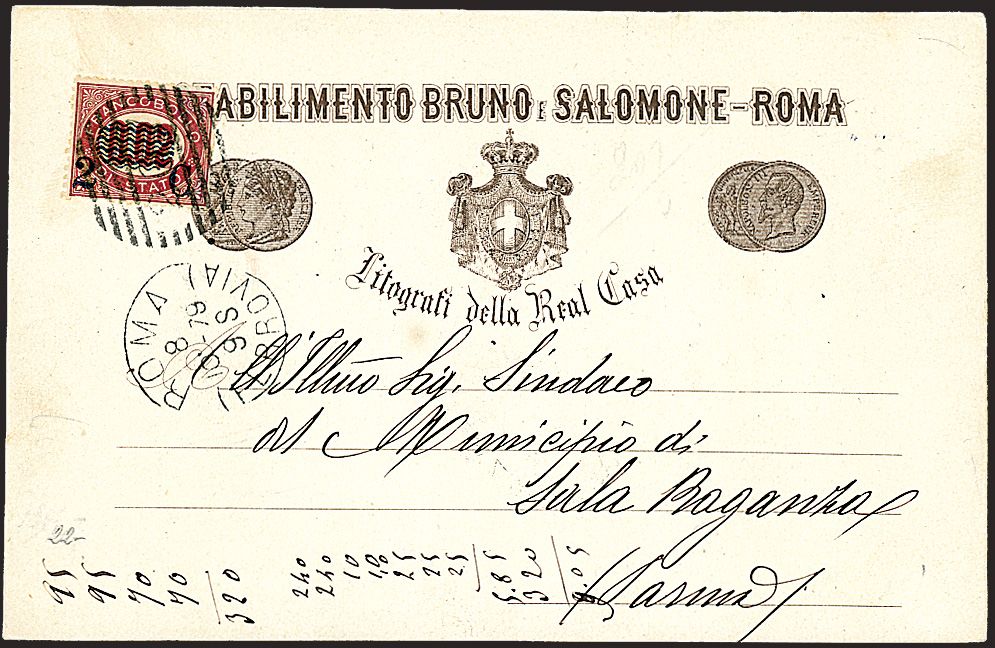 STABILIMENTO BRUNO E SALOMONE-ROMA
FRANCOBOLLO
DI STATO
2 C
Litografi della Real Casa
ROMA
(FERROVIA)
8
79
9 S
All'Illmo Sig. Sindaco
del Municipio di
Sala Baganza
(Parma)
22-
95
95
70
70
320
240
240
10
25
25
25
5.85
3 20
9.05